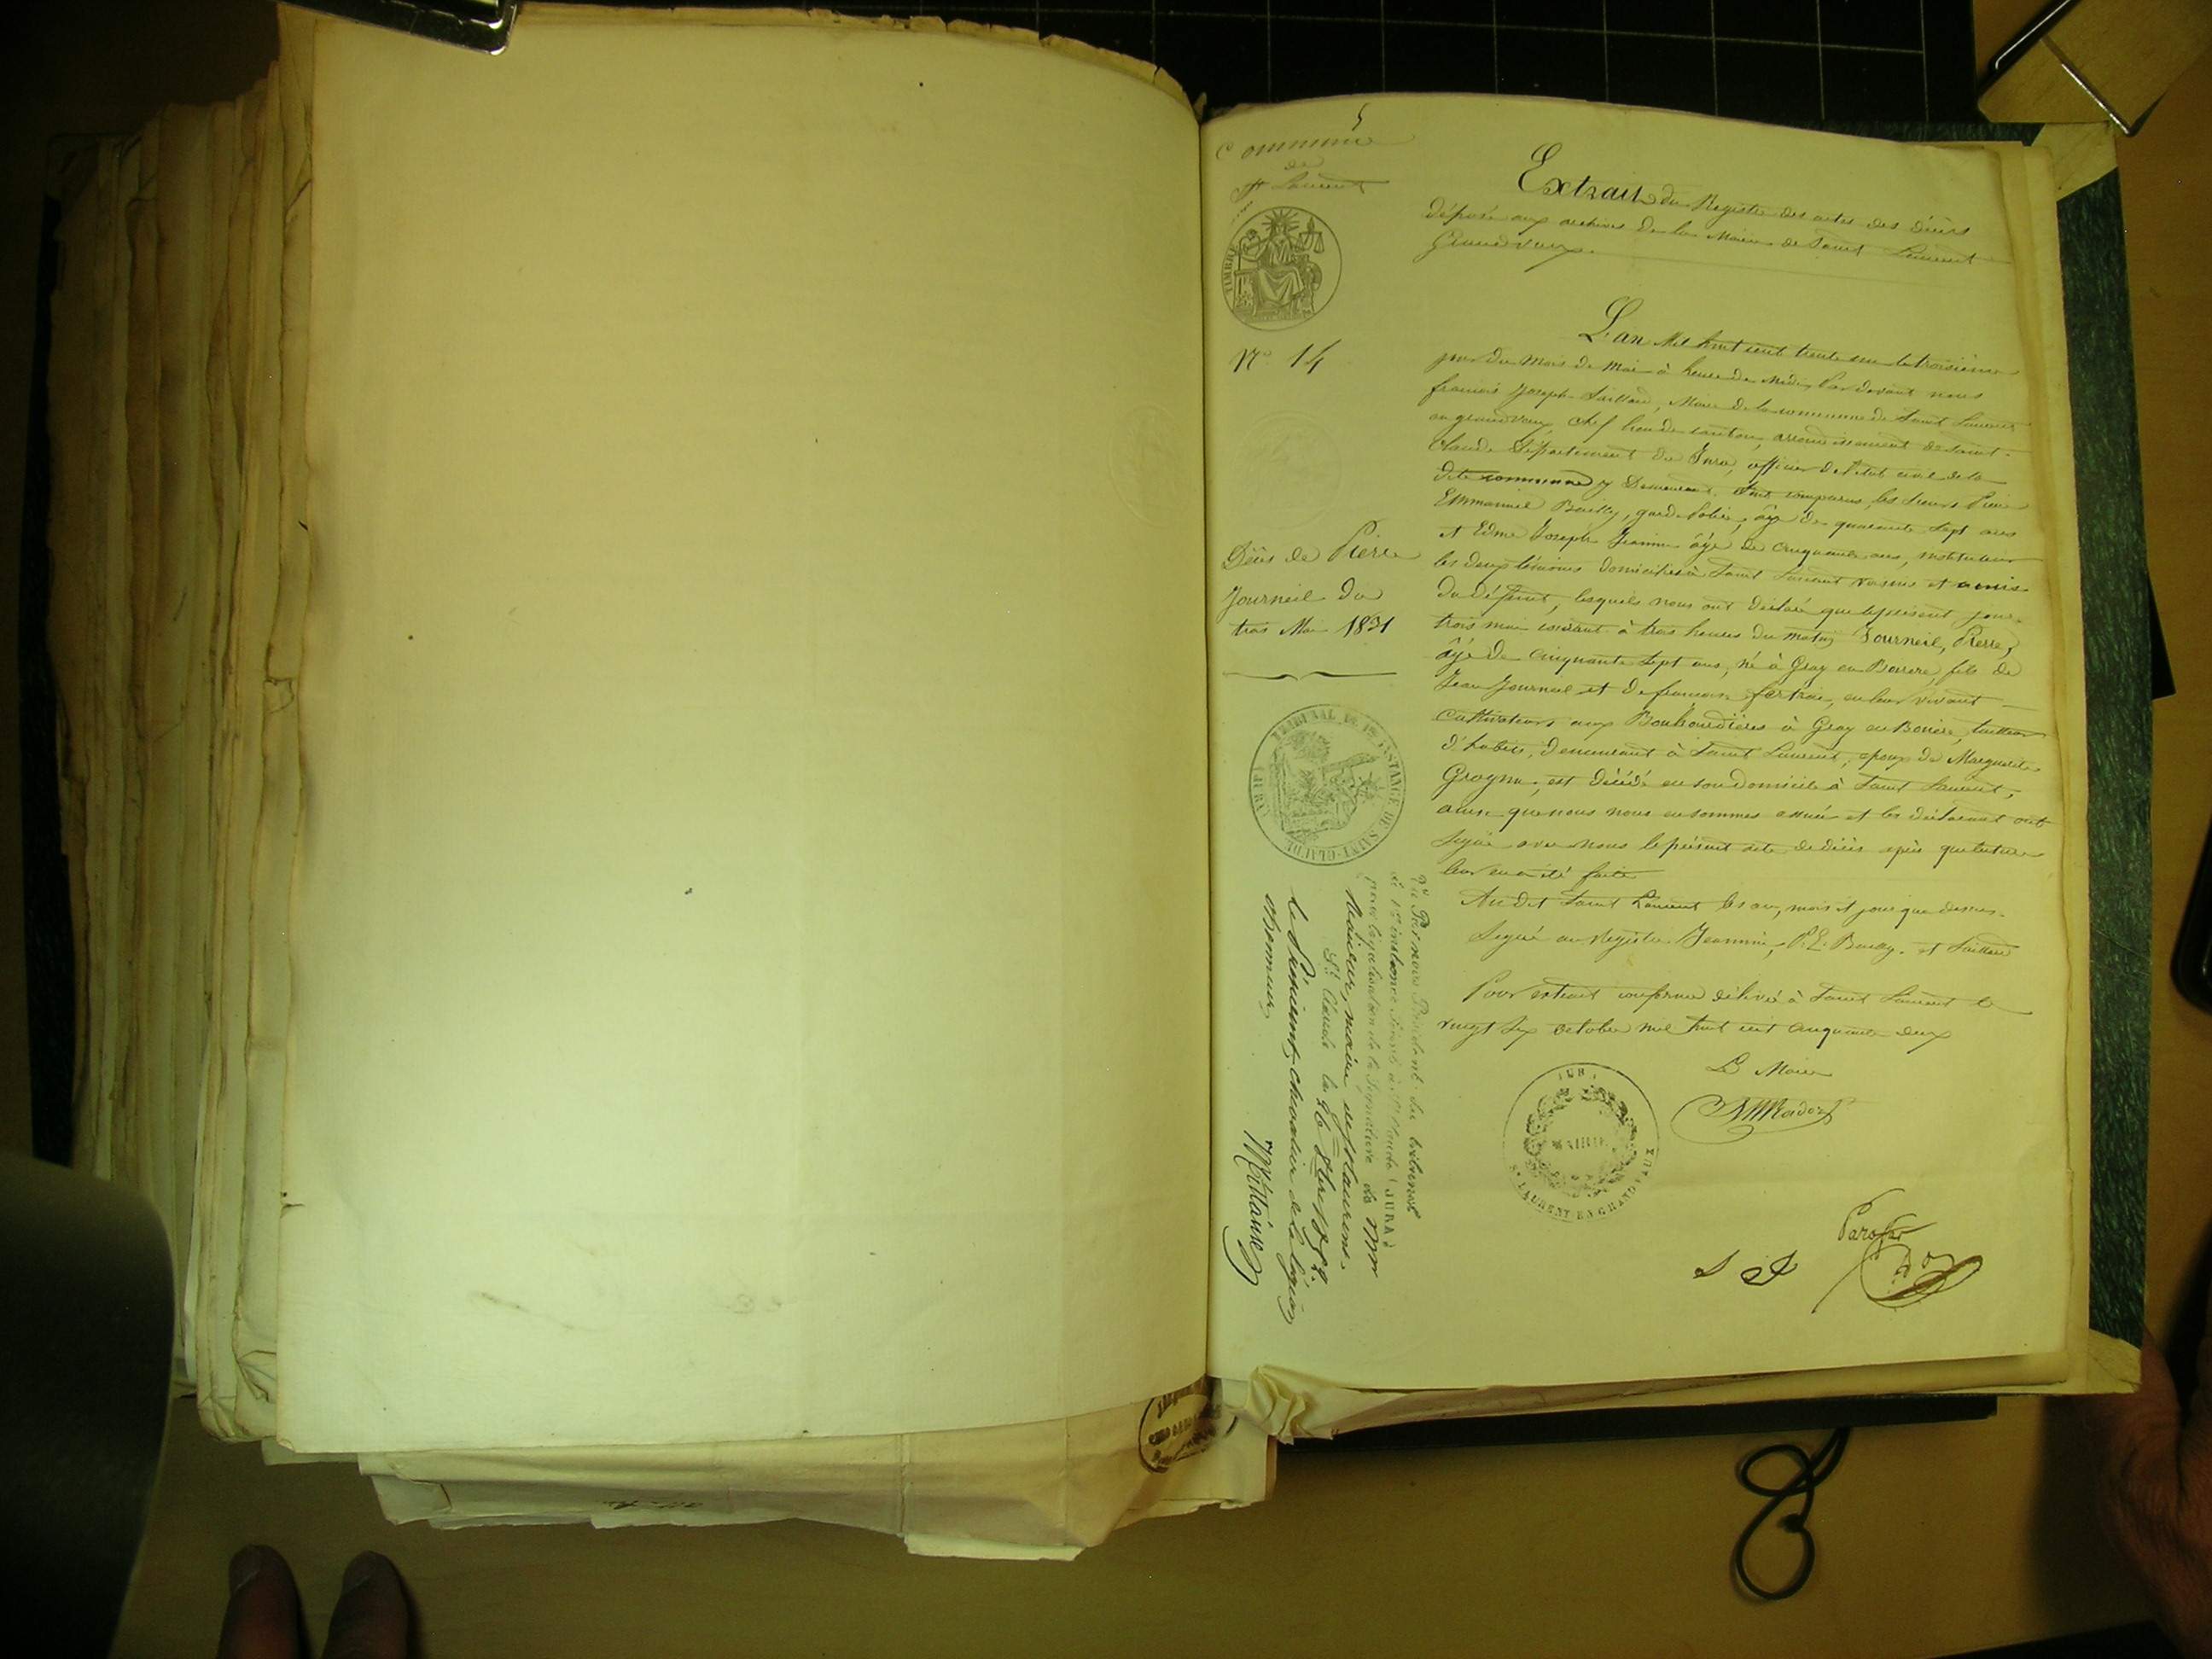 Commune
de
St Laurent
TIMBRE
N° 14
Décès de Pierre
Journeil du
trois Mai 1831
TRIBUNAL DE 1re INSTANCE DE SAINT-CLAUDE
(JURA)
Vu Par nous Président du tribunal
de 1re instance séant à St Claude (JURA)
pour légalisation de la Signature de Mr
maire de St Laurent.
St Claude le 26 8bre 1852.
chevalier de la légion
d'honneur
Extrait du Registre des actes des décès
déposé aux archives de la Mairie de Saint Laurent
Grandvaux.
L'an Mil huit cent trente un le troisième
jour du mois de Mai à heure de Midi, Par devant nous
françois Joseph Saillard, Maire de la commune de Saint Laurent
en grandvaux, chef lieu de canton, arrondissement de Saint-
Claude Département du Jura, officier de l'état civil de la
dite commune y Demeurant. Sont comparus, les sieurs Pierre
Emmanuel Bailly, garde Police, âgé de quarante sept ans
et Edme Joseph Jeannin âgé de cinquante ans, instituteur
les deux témoins domiciliés à Saint Laurent voisins et amis
du défunt, lesquels nous ont déclaré que le présent jour
trois mai courant à trois heures du matin Journeil, Pierre,
âgé de cinquante sept ans, né à Gray en Borrere, fils de
Jean Journeil et de françoise, en leur vivant
cultivateurs aux Bouhourdières à Gray en Borrere, tailleur
d'habits, demeurant à Saint Laurent, époux de Marguerite
est décédé en son domicile à Saint Laurent,
ainsi que nous nous en sommes assuré et les déclarants ont
signé avec nous le présent acte de décès après que lecture
leur en a été faite
Au dit Saint Laurent les an, mois et jour que dessus.
Signé au Registre Jeannin, P. E. Bailly. et Saillard
Pour extrait conforme délivré à Saint Laurent le
vingt six octobre mil huit cent cinquante deux
Le Maire
JURA
MAIRIE
ST LAURENT EN GRANDVAUX